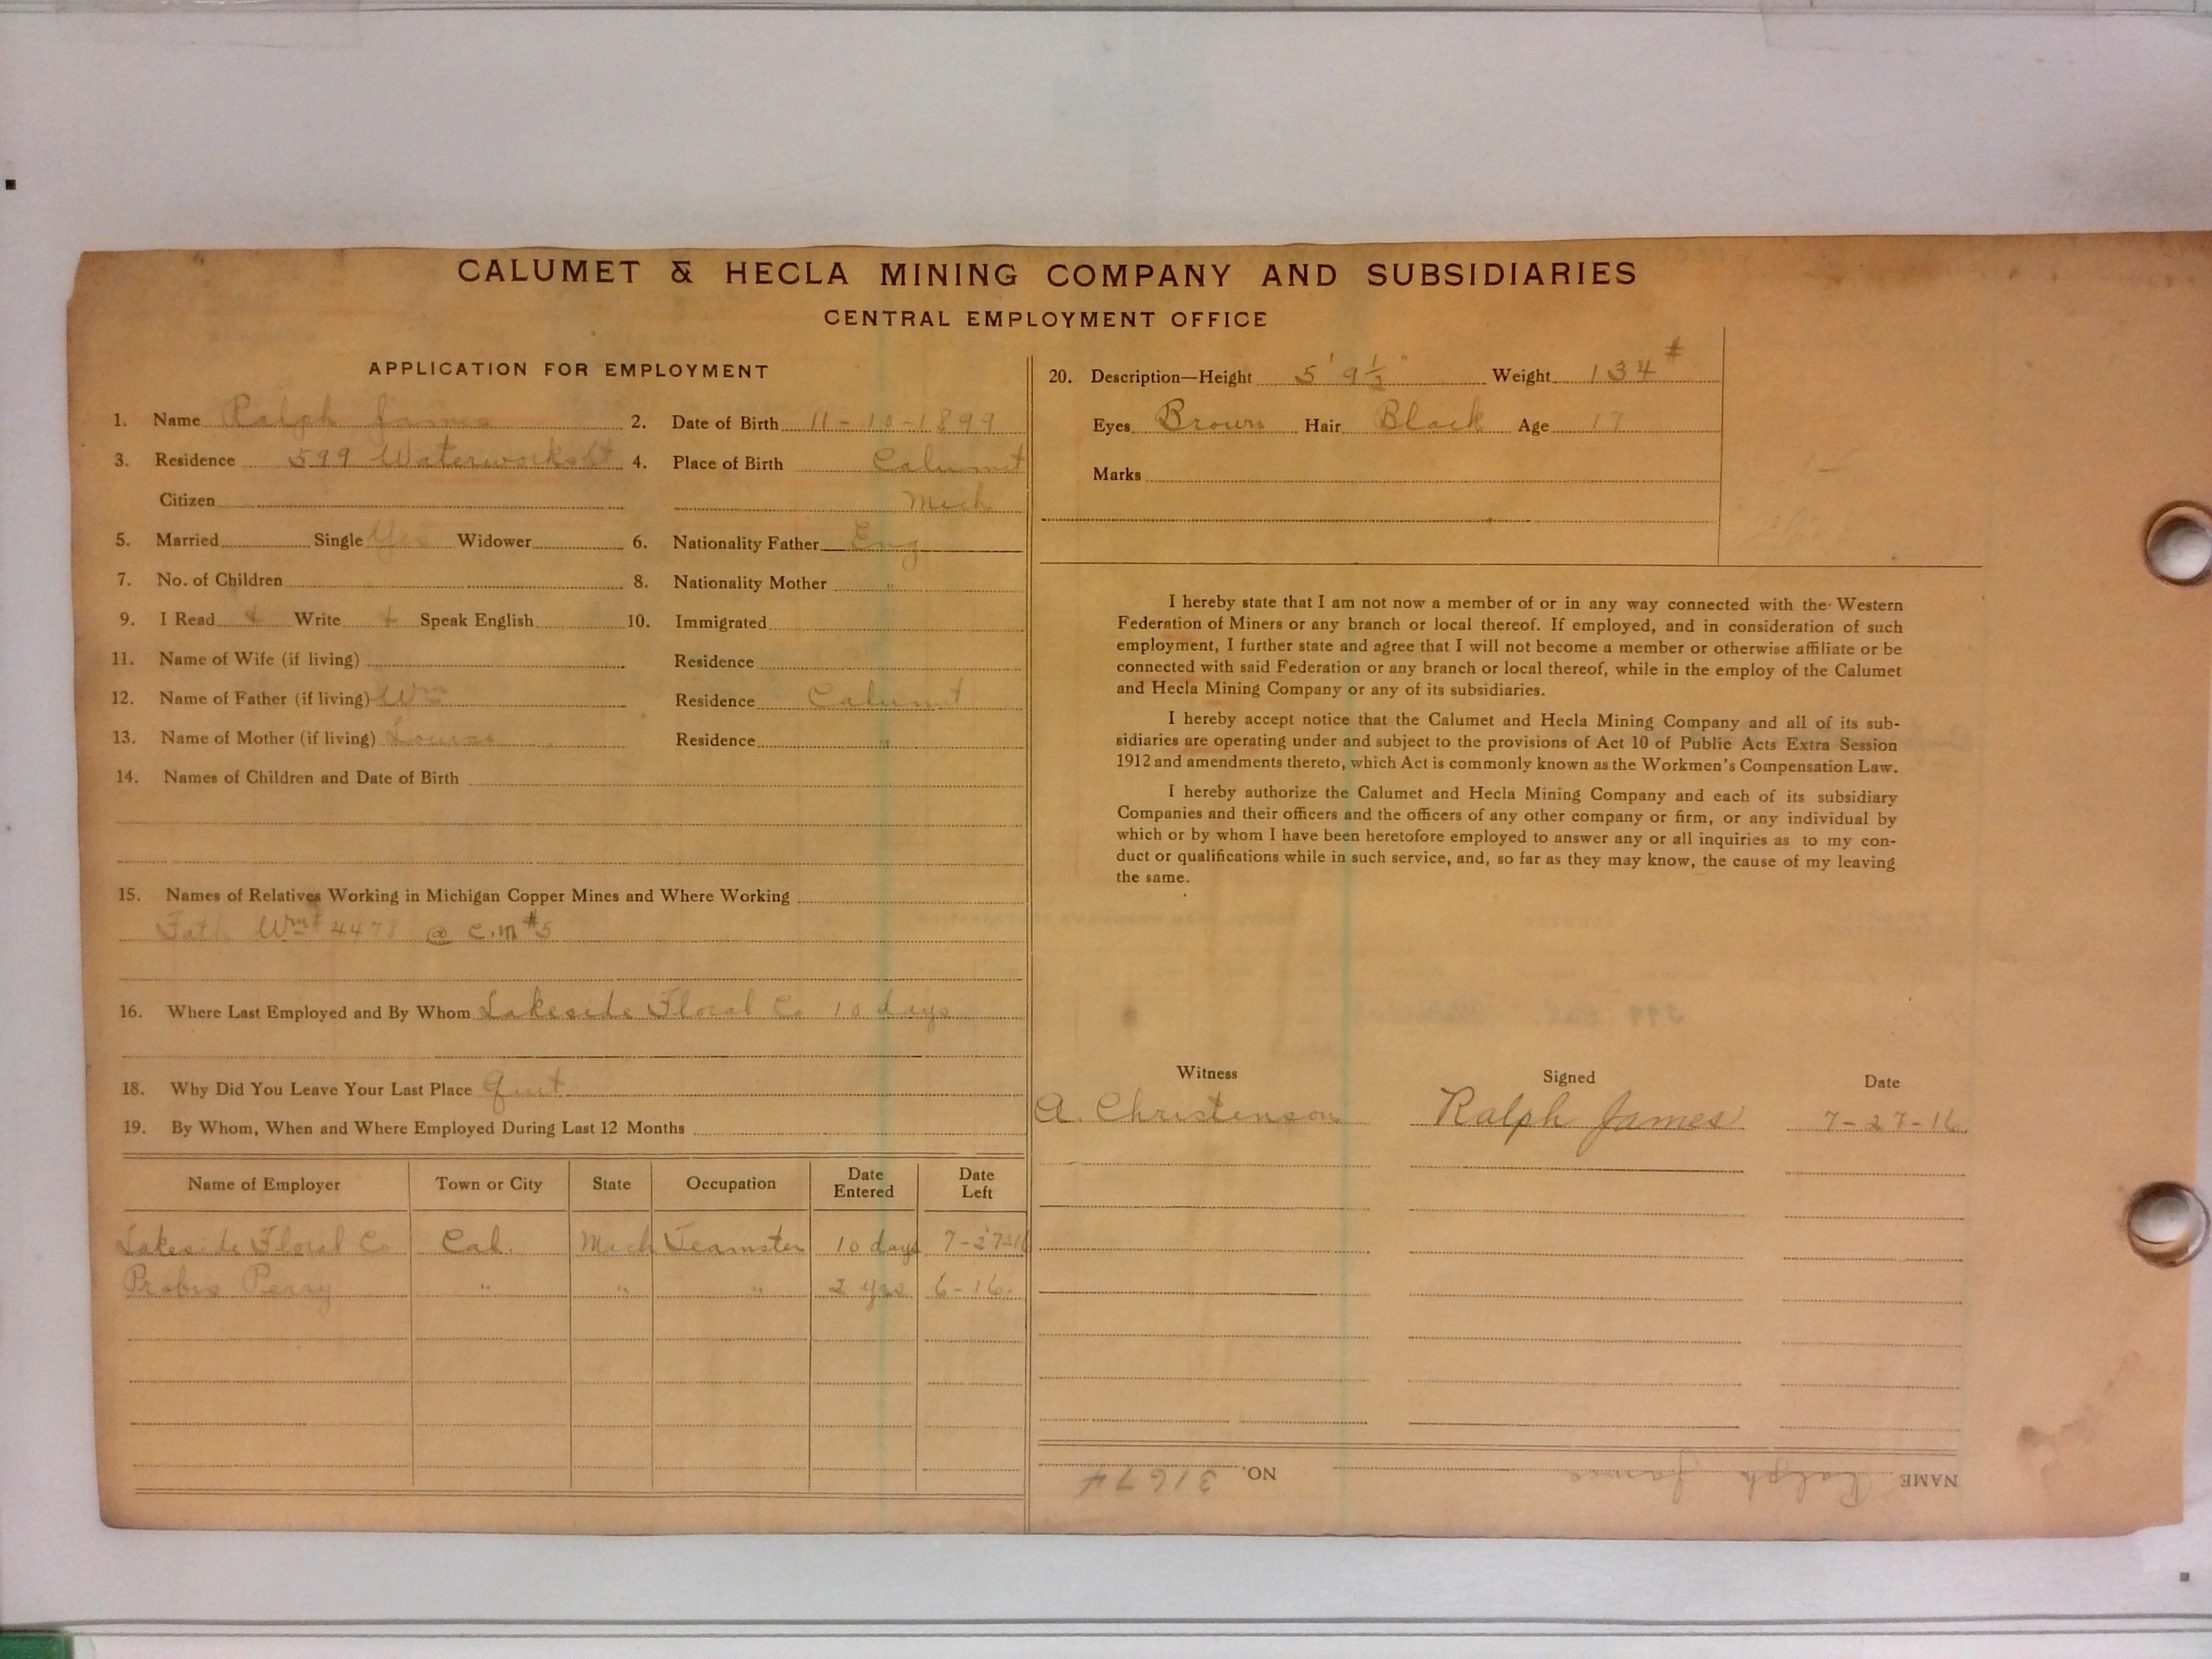 CALUMET & HECLA MINING COMPANY AND SUBSIDIARIES
CENTRAL EMPLOYMENT OFFICE
APPLICATION FOR EMPLOYMENT
1. Name Ralph James 2. Date of Birth 11-10-1899
3. Residence 599 Waterworks St 4. Place of Birth Calumet
Citizen Mich
5. Married Single Yes Widower 6. Nationality Father Eng
7. No. of Children 8. Nationality Mother "
9. I Read + Write + Speak English 10. Immigrated
11. Name of Wife (if living) Residence
12. Name of Father (if living) Wm Residence Calumet
13. Name of Mother (if living) Louise Residence "
14. Names of Children and Date of Birth
15. Names of Relatives Working in Michigan Copper Mines and Where Working
Fath Wm # 4478 @ C.M #5
16. Where Last Employed and By Whom Lakeside Floral Co 10 days
18. Why Did You Leave Your Last Place quit
19. By Whom, When and Where Employed During Last 12 Months
Name of Employer Town or City State Occupation Date Entered Date Left
Lakeside Floral Co Cal. Mich Teamster 10 days 7-27-16
Perry " " " 2 yrs 6-16.
20. Description—Height 5' 9 1/2" Weight 134#
Eyes Brown Hair Black Age 17
Marks
I hereby state that I am not now a member of or in any way connected with the Western
Federation of Miners or any branch or local thereof. If employed, and in consideration of such
employment, I further state and agree that I will not become a member or otherwise affiliate or be
connected with said Federation or any branch or local thereof, while in the employ of the Calumet
and Hecla Mining Company or any of its subsidiaries.
I hereby accept notice that the Calumet and Hecla Mining Company and all of its sub-
sidiaries are operating under and subject to the provisions of Act 10 of Public Acts Extra Session
1912 and amendments thereto, which Act is commonly known as the Workmen's Compensation Law.
I hereby authorize the Calumet and Hecla Mining Company and each of its subsidiary
Companies and their officers and the officers of any other company or firm, or any individual by
which or by whom I have been heretofore employed to answer any or all inquiries as to my con-
duct or qualifications while in such service, and, so far as they may know, the cause of my leaving
the same.
Witness Signed Date
A. Christenson Ralph James 7-27-16
NAME Ralph James NO. 31674